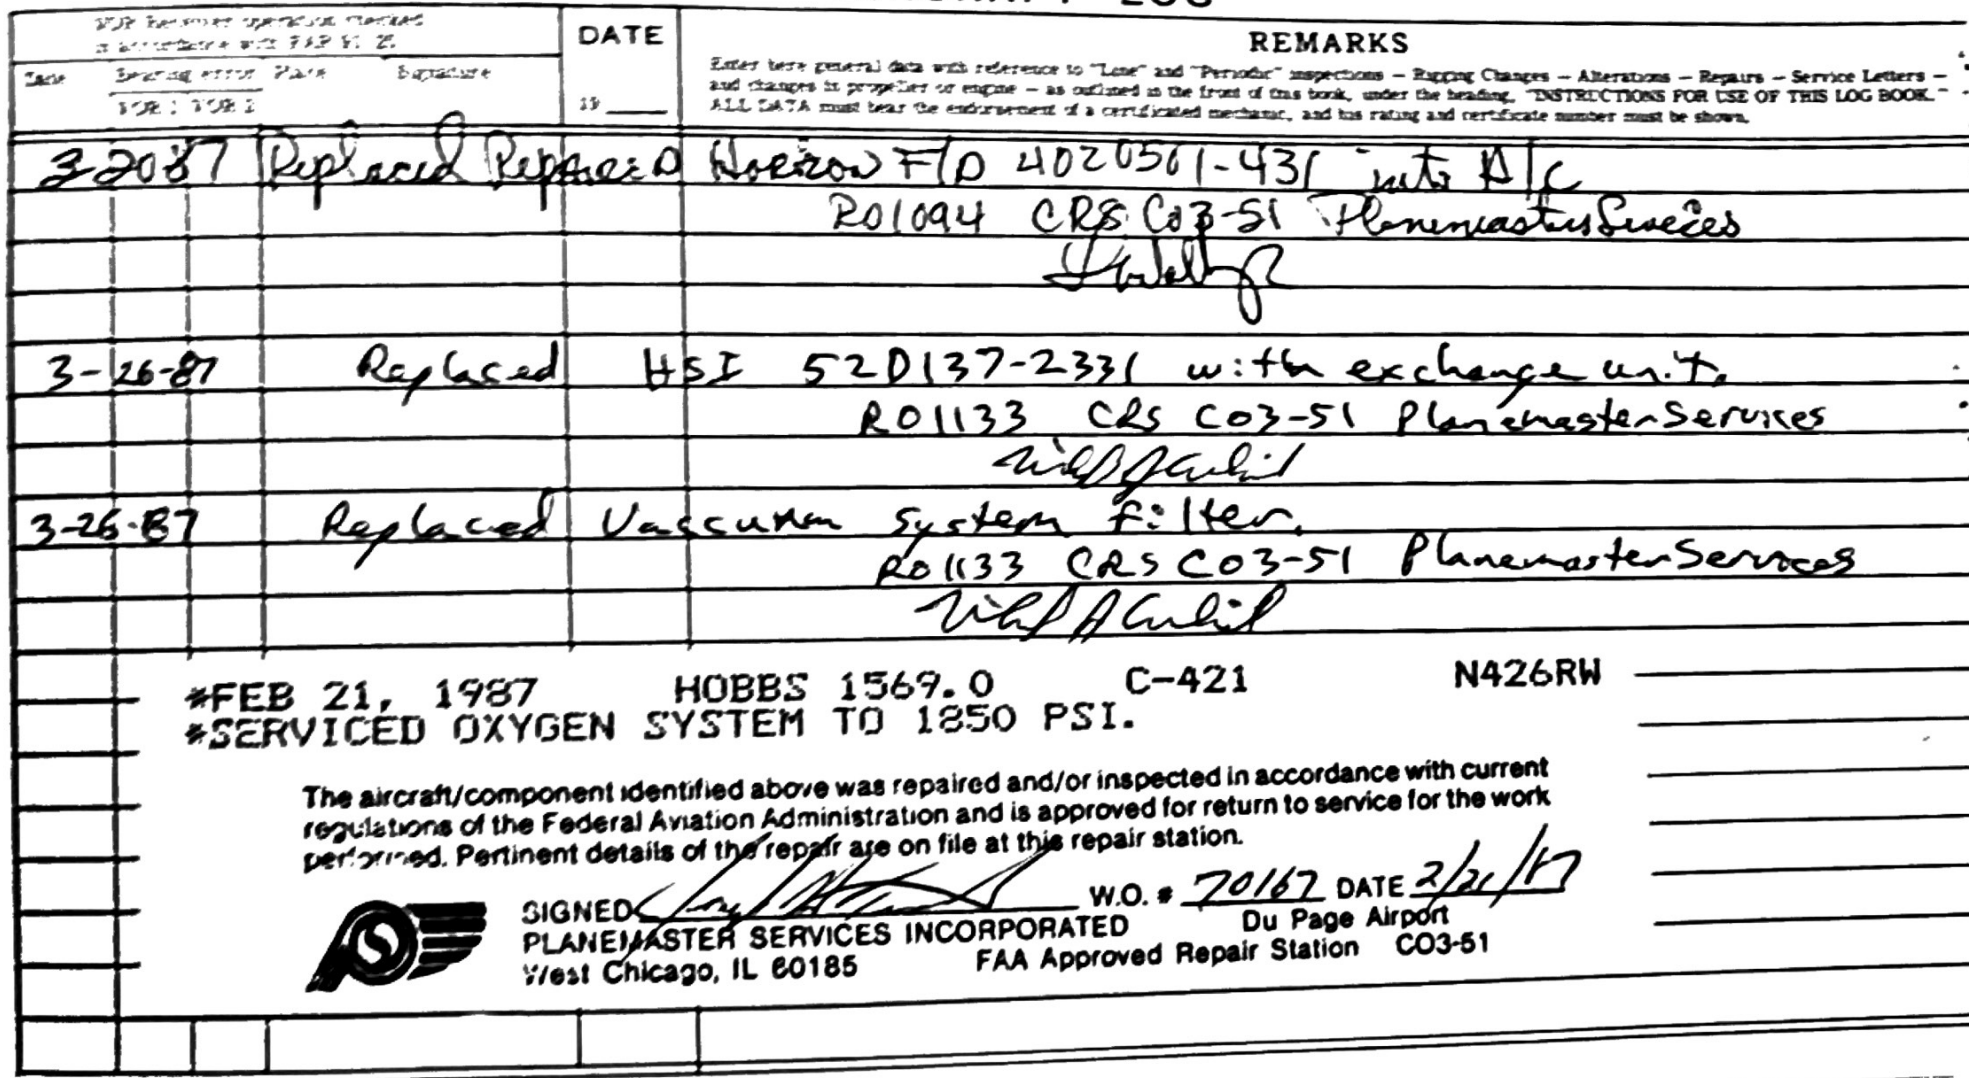 VOR Receiver operation checked
in accordance with FAR 91.25
DATE
REMARKS
Date Bearing error Place Signature
VOR 1 VOR 2
19
Enter here general data with reference to "Line" and "Periodic" inspections — Rigging Changes — Alterations — Repairs — Service Letters —
and changes in propeller or engine — as outlined in the front of this book, under the heading, "INSTRUCTIONS FOR USE OF THIS LOG BOOK."
ALL DATA must bear the endorsement of a certificated mechanic, and his rating and certificate number must be shown.
3-20 87 Replaced Repaired Horizon F/D 4020561-431 into A/C
R01094 CRS C03-51 Planemaster Services
3-26-87 Replaced HSI 52D137-2331 with exchange unit.
R01133 CRS C03-51 Planemaster Services
3-26-87 Replaced Vascuum system filter.
R01133 CRS C03-51 Planemaster Services
*FEB 21, 1987 HOBBS 1569.0 C-421 N426RW
*SERVICED OXYGEN SYSTEM TO 1850 PSI.
The aircraft/component identified above was repaired and/or inspected in accordance with current
regulations of the Federal Aviation Administration and is approved for return to service for the work
performed. Pertinent details of the repair are on file at this repair station.
SIGNED W.O. # 70167 DATE 2/21/87
PLANEMASTER SERVICES INCORPORATED Du Page Airport
West Chicago, IL 60185 FAA Approved Repair Station CO3-51